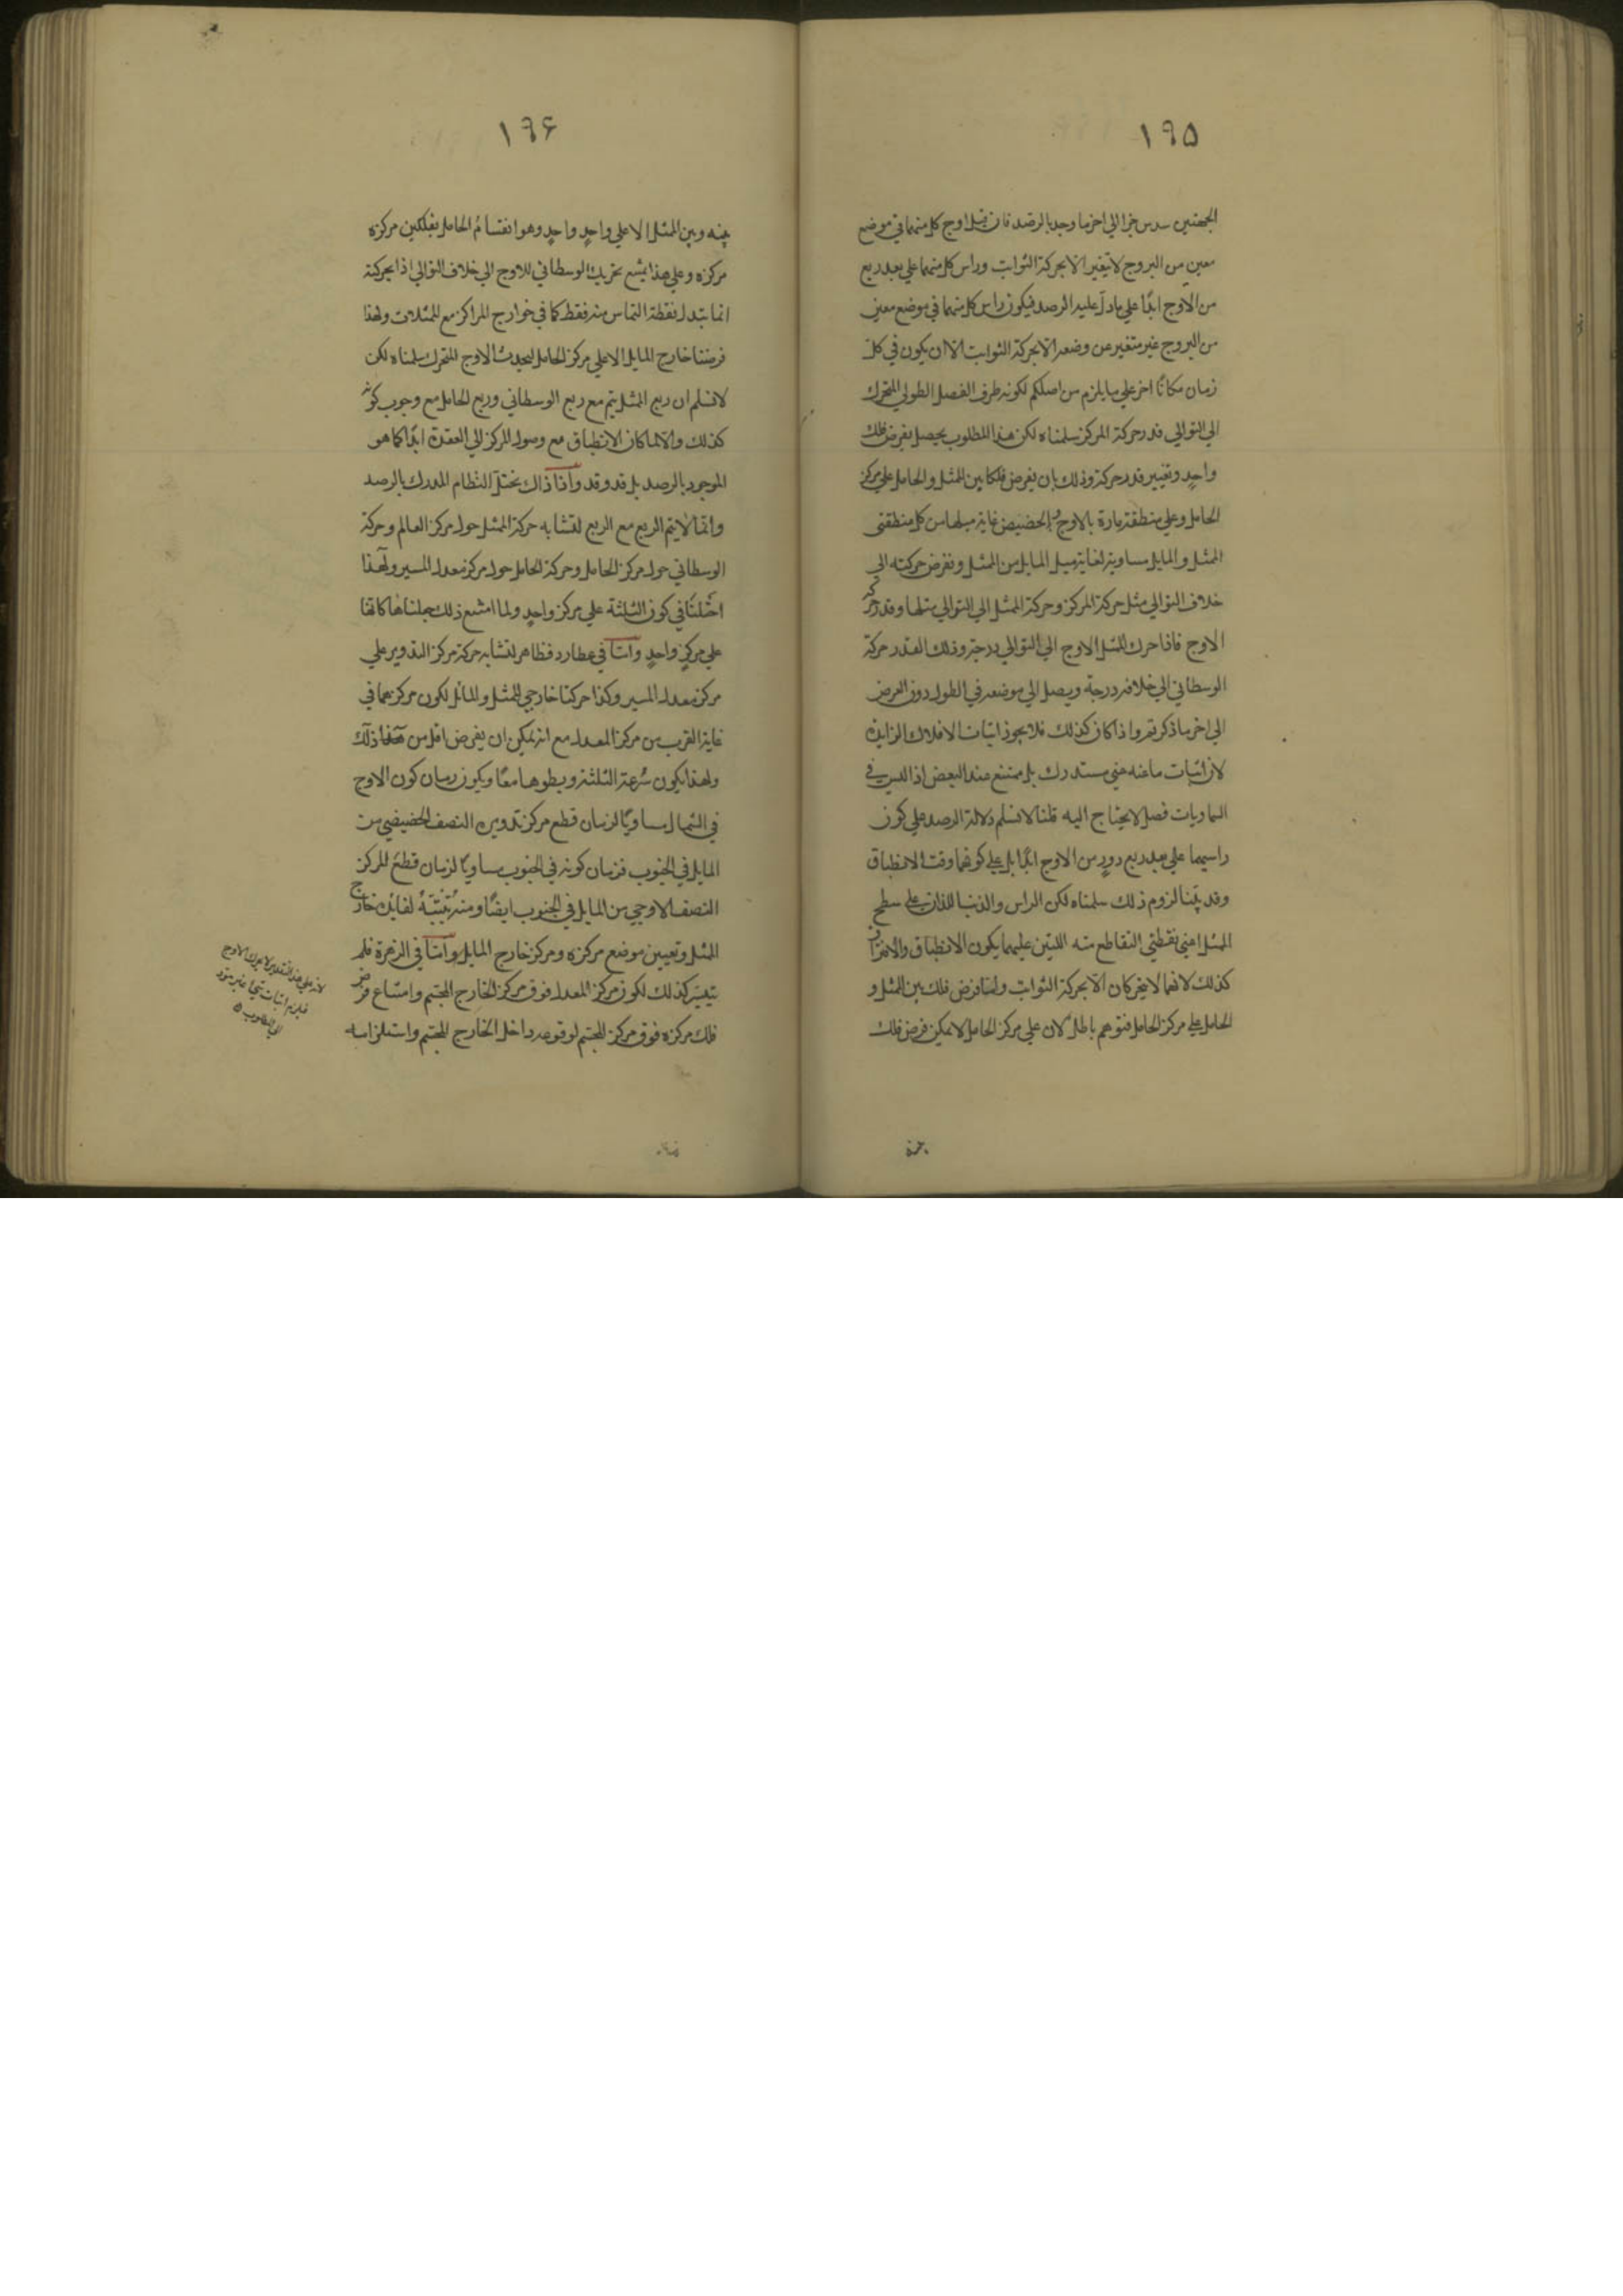 ١٩٥
الجهتين سدس جزا الي اخر ما وجد بالرصد فان قيل اوج كل منهما في موضع
معين من البروج لا يتغير الا بحركة الثوابت وراس كل منهما علي بعد ربع
من الاوج ابدًا علي ما دلّ عليه الرصد فيكون راس كل منهما في موضع معين
من البروج غير متغير عن وضعه الا بحركة الثوابت الا ان يكون في كل
زمان مكانًا اخر علي ما يلزم من اصلكم لكونه طرف الفصل الطولي المتحرك
الي التوالي قدر حركة المركز سلمناه لكن هذا المطلوب يحصل بفرض فلك
واحدٍ وتغيير قدر حركة وذلك بان نفرض فلكا بين الممثل والحامل علي مركز
الحامل وعلي منطقة مارة بالاوج والحضيض غاية ميلها من كل منطقتي
الممثل والمايل مساوية لغاية ميل المايل من الممثل ونفرض حركته الي
خلاف التوالي مثل حركة المركز وحركة الممثل الي التوالي مثلها وقدر حركة
الاوج فاذا حرك الممثل الاوج الي التوالي درجة وذلك القدر حركة
الوسطاني الي خلافه درجة ويصل الي موضعه في الطول دون العرض
الي اخر ما ذكرتم واذا كان كذلك فلا يجوز اثبات الافلاك الزايدة
لان اثبات ما عنه غني مستدرك بل ممتنع عند البعض اذ ليس في
السماويات فصل لا يحتاج اليه قلنا لا نسلم دلالة الرصد علي كون
راسيهما علي بعد ربع دورٍ من الاوج ابدًا بل علي كونهما وقت الانطباق
وقد بيّنا لزوم ذلك سلمناه لكن الراس والذنب اللذان علي سطح
الممثل اعني نقطتي التقاطع منه اللتين عليهما يكون الانطباق والافتراق
كذلك لانهما لا يتحركان الا بحركة الثوابت واما فرض فلك بين الممثل و
الحامل علي مركز الحامل فتوهم باطل لان علي مركز الحامل لا يمكن فرض فلك
١٩٦
بينه وبين الممثل الا علي واحدٍ واحدٍ وهو انقسام الحامل بفلكين مركزه
مركزه وعلي هذا يمتنع تحريك الوسطاني للاوج الي خلاف التوالي اذا بحركته
انما يتبدل نقطة التماس منه فقط كما في خوارج المراكز مع الممثلات ولهذا
فرضنا خارج المايل لا علي مركز الحامل ليحدث الاوج المتحرك سلمناه لكن
لا نسلم ان ربع الممثل يتم مع ربع الوسطاني وربع الحامل مع وجوب كونه
كذلك والا لما كان الانطباق مع وصول المركز الي العقدة ابدًا كما هو
الموجود بالرصد بل قد وقد واذا ذاك يختل النظام المدرك بالرصد
وانما لا يتم الربع مع الربع لتشابه حركة الممثل حول مركز العالم وحركة
الوسطاني حول مركز الحامل وحركة الحامل حول مركز معدل المسير ولهذا
احتلنا في كون الثلثة علي مركز واحدٍ ولما امتنع ذلك جعلناها كانها
علي مركزٍ واحدٍ واما في عطارد فظاهر لتشابه حركة مركز التدوير علي
مركز معدل المسير وكذا حركتا خارجي الممثل والمائل لكون مركزهما في
غاية القرب من مركز المعدل مع انه يمكن ان يفرض اقل من ذلك
ولهذا يكون سُرعة الثلثة وبطوها معًا ويكون زمان كون الاوج
في الشمال مساويًا لزمان قطع مركز تدويره النصف الحضيضي من
المايل في الجنوب فزمان كونه في الجنوب مساويًا لزمان قطع المركز
النصف الاوجي من المايل في الجنوب ايضًا ومنه خارج
الممثل وتعيين موضع مركزه ومركز خارج المايل واما في الزهرة فلم
يتيسر كذلك لكون مركز المعدل فوق مركز الخارج المجسم وامتناع فرض
فلك مركزه فوق مركز المجسم لوقوعه داخل الخارج المجسم واستلزامه